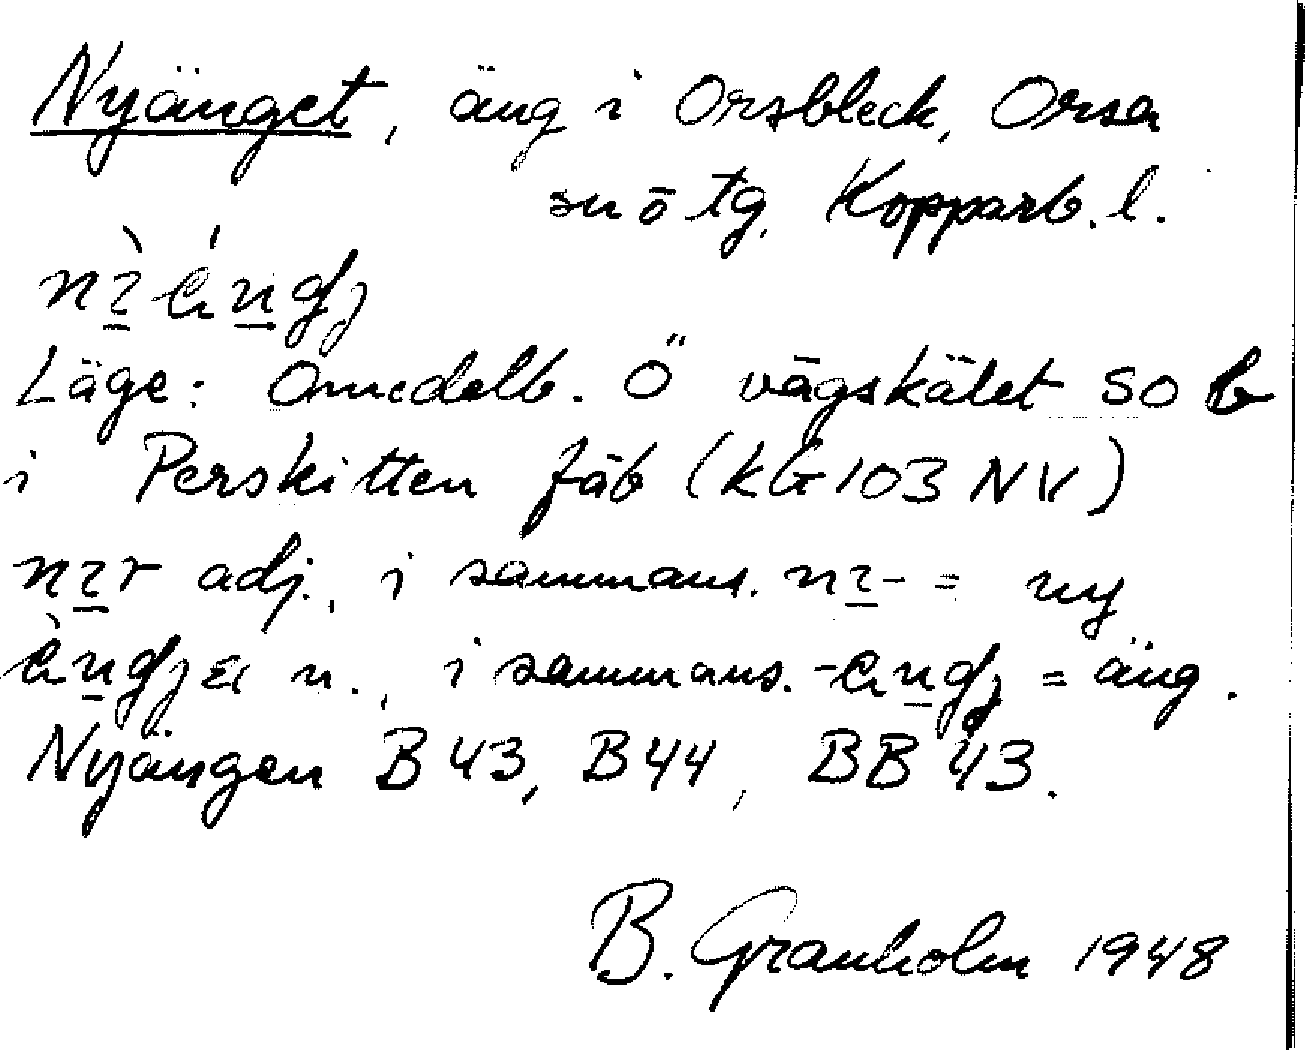 Nyänget, äng i Orsbleck, Orsa
sn ö tg. Kopparb. l.
Läge: Omedelb. Ö vägskälet SO b
i Perskitten fäb (KG 103 NV)
adj., i sammans. = ny
n., i sammans. = äng.
Nyängen B 43, B 44, BB 43.
B. Granholm 1948